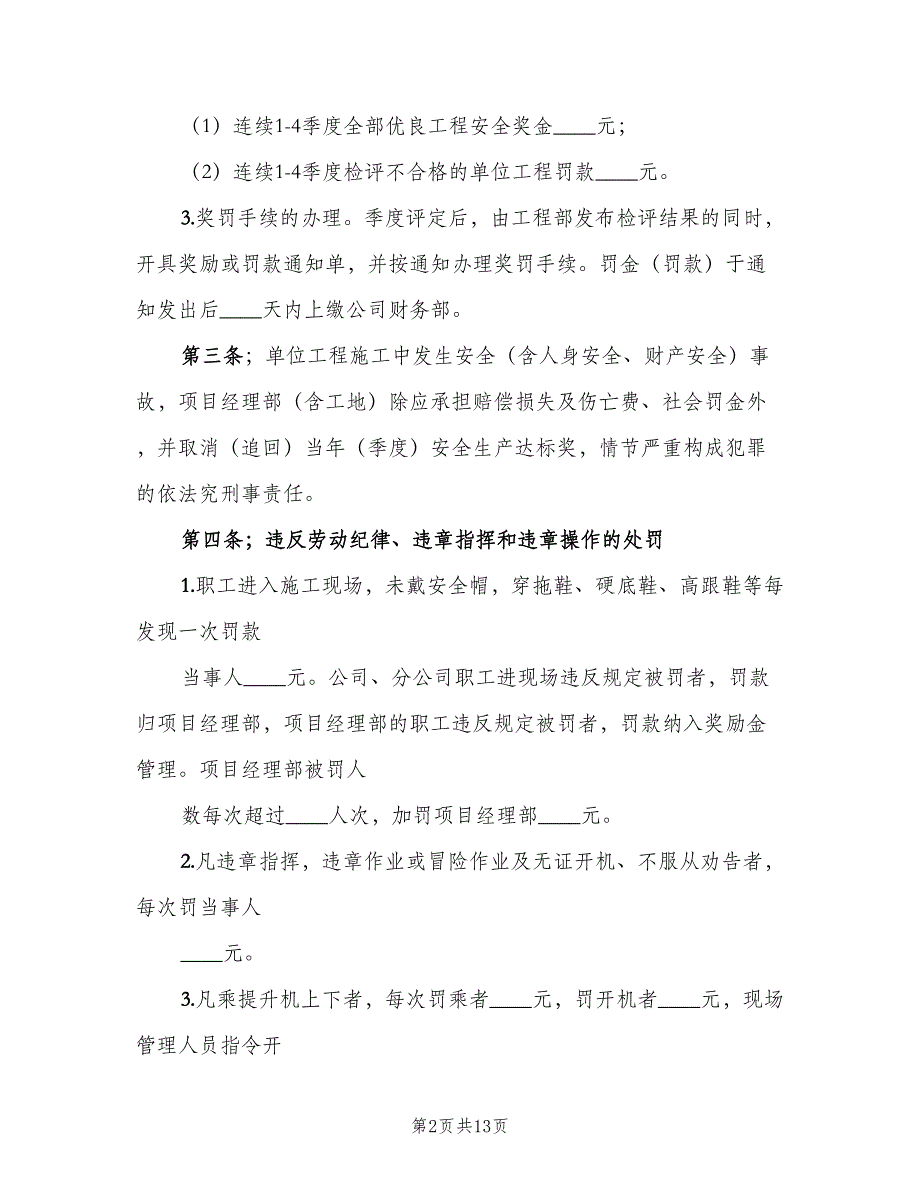 （1）连续1-4季度全部优良工程安全奖金____元；
（2）连续1-4季度检评不合格的单位工程罚款____元。
3.奖罚手续的办理。季度评定后，由工程部发布检评结果的同时，
开具奖励或罚款通知单，并按通知办理奖罚手续。罚金（罚款）于通
知发出后____天内上缴公司财务部。
第三条；单位工程施工中发生安全（含人身安全、财产安全）事
故，项目经理部（含工地）除应承担赔偿损失及伤亡费、社会罚金外
，并取消（追回）当年（季度）安全生产达标奖，情节严重构成犯罪
的依法究刑事责任。
第四条；违反劳动纪律、违章指挥和违章操作的处罚
1.职工进入施工现场，未戴安全帽，穿拖鞋、硬底鞋、高跟鞋等每
发现一次罚款
当事人____元。公司、分公司职工进现场违反规定被罚者，罚款
归项目经理部，项目经理部的职工违反规定被罚者，罚款纳入奖励金
管理。项目经理部被罚人
数每次超过____人次，加罚项目经理部____元。
2.凡违章指挥，违章作业或冒险作业及无证开机、不服从劝告者，
每次罚当事人
____元。
3.凡乘提升机上下者，每次罚乘者____元，罚开机者____元，现场
管理人员指令开
第2页共13页